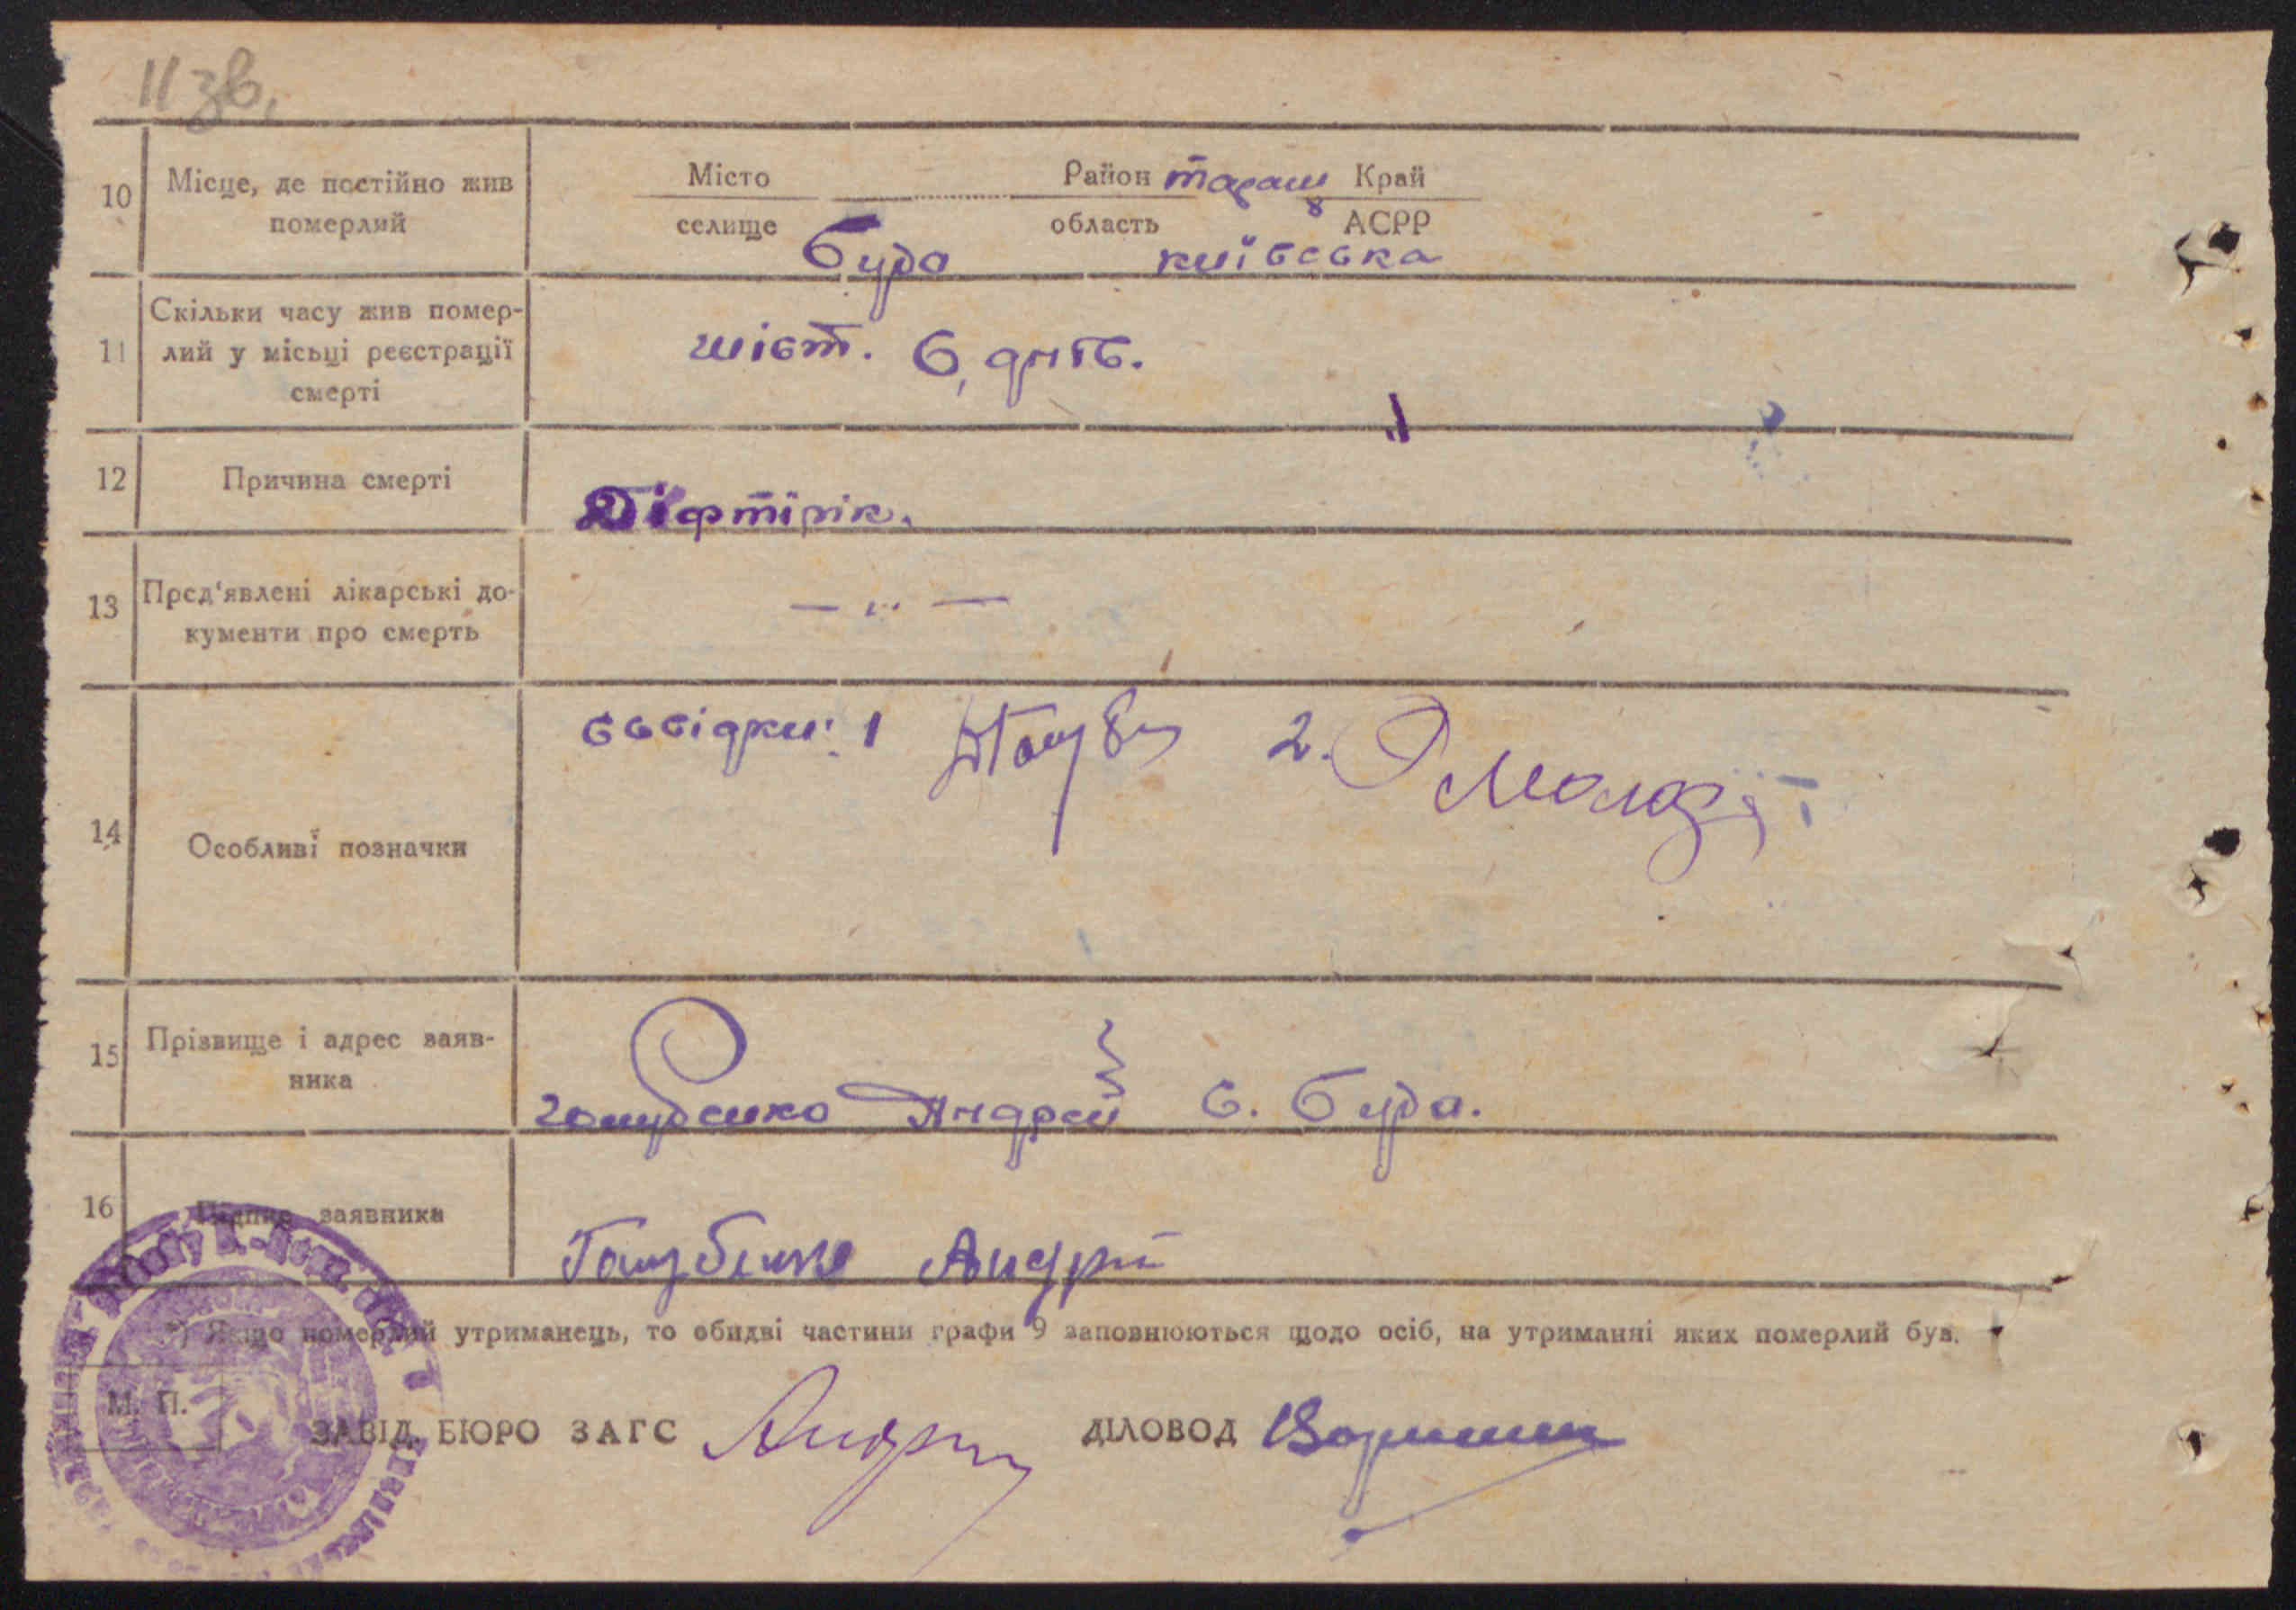 11 зв.
10 Місце, де постійно жив померлий
Місто Район тараш Край
селище область АСРР
Буда київська
11 Скільки часу жив помер-
лий у місьці реєстрації
смерті
шіст. 6, днів.
12 Причина смерті
Діфтірік.
13 Пред'явлені лікарські до-
кументи про смерть
— ,, —
14 Особливі позначки
свідки: 1 2.
15 Прізвище і адрес заяв-
ника
голубенко Андрей с. Буда.
16 Підпис заявника
Голубенко Андрій
*) Якщо померлий утриманець, то обидві частини графи 9 заповнюються щодо осіб, на утриманні яких померлий був.
М. П.
ЗАВІД. БЮРО ЗАГС ДІЛОВОД